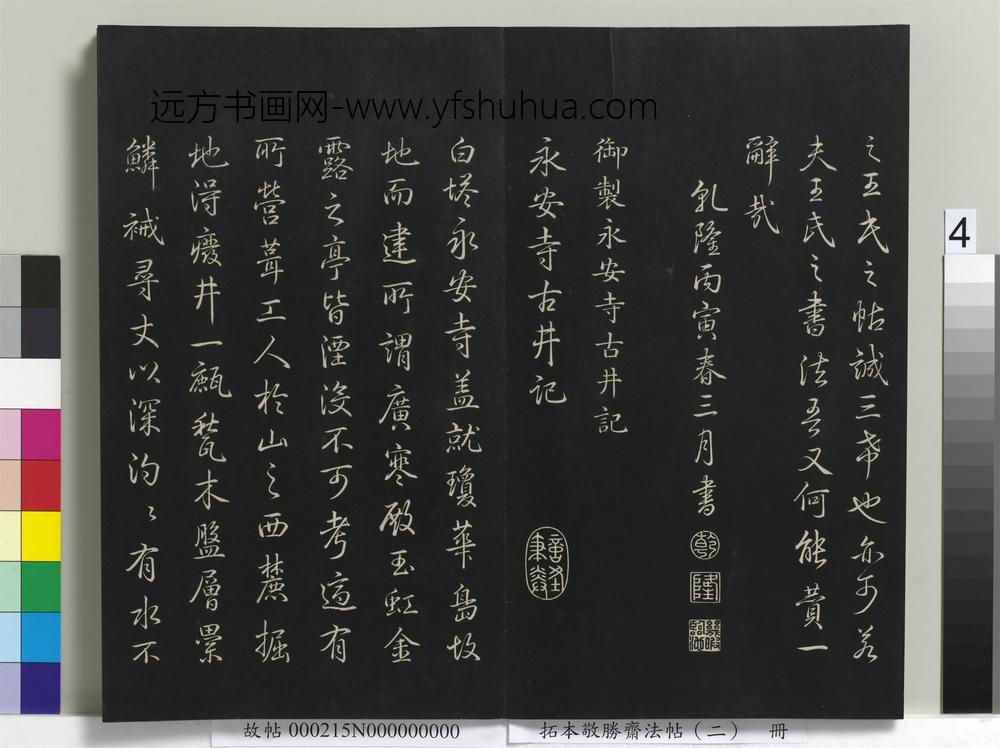 远方书画网-www.yfshuhua.com
之王氏之帖誠三希也亦可若
夫王氏之書法吾又何能贊一
辭哉
乾隆丙寅春三月書
乾
隆
御製永安寺古井記
永安寺古井記
白塔永安寺盖就瓊華島故
地而建所謂廣寒殿玉虹金
露之亭皆湮没不可考適有
所營葺工人於山之西麓掘
地得癈井一甎甃木盤層累
鱗裓尋丈以深汋〻有水不
4
故帖 000215N000000000
拓本敬勝齋法帖（二） 冊